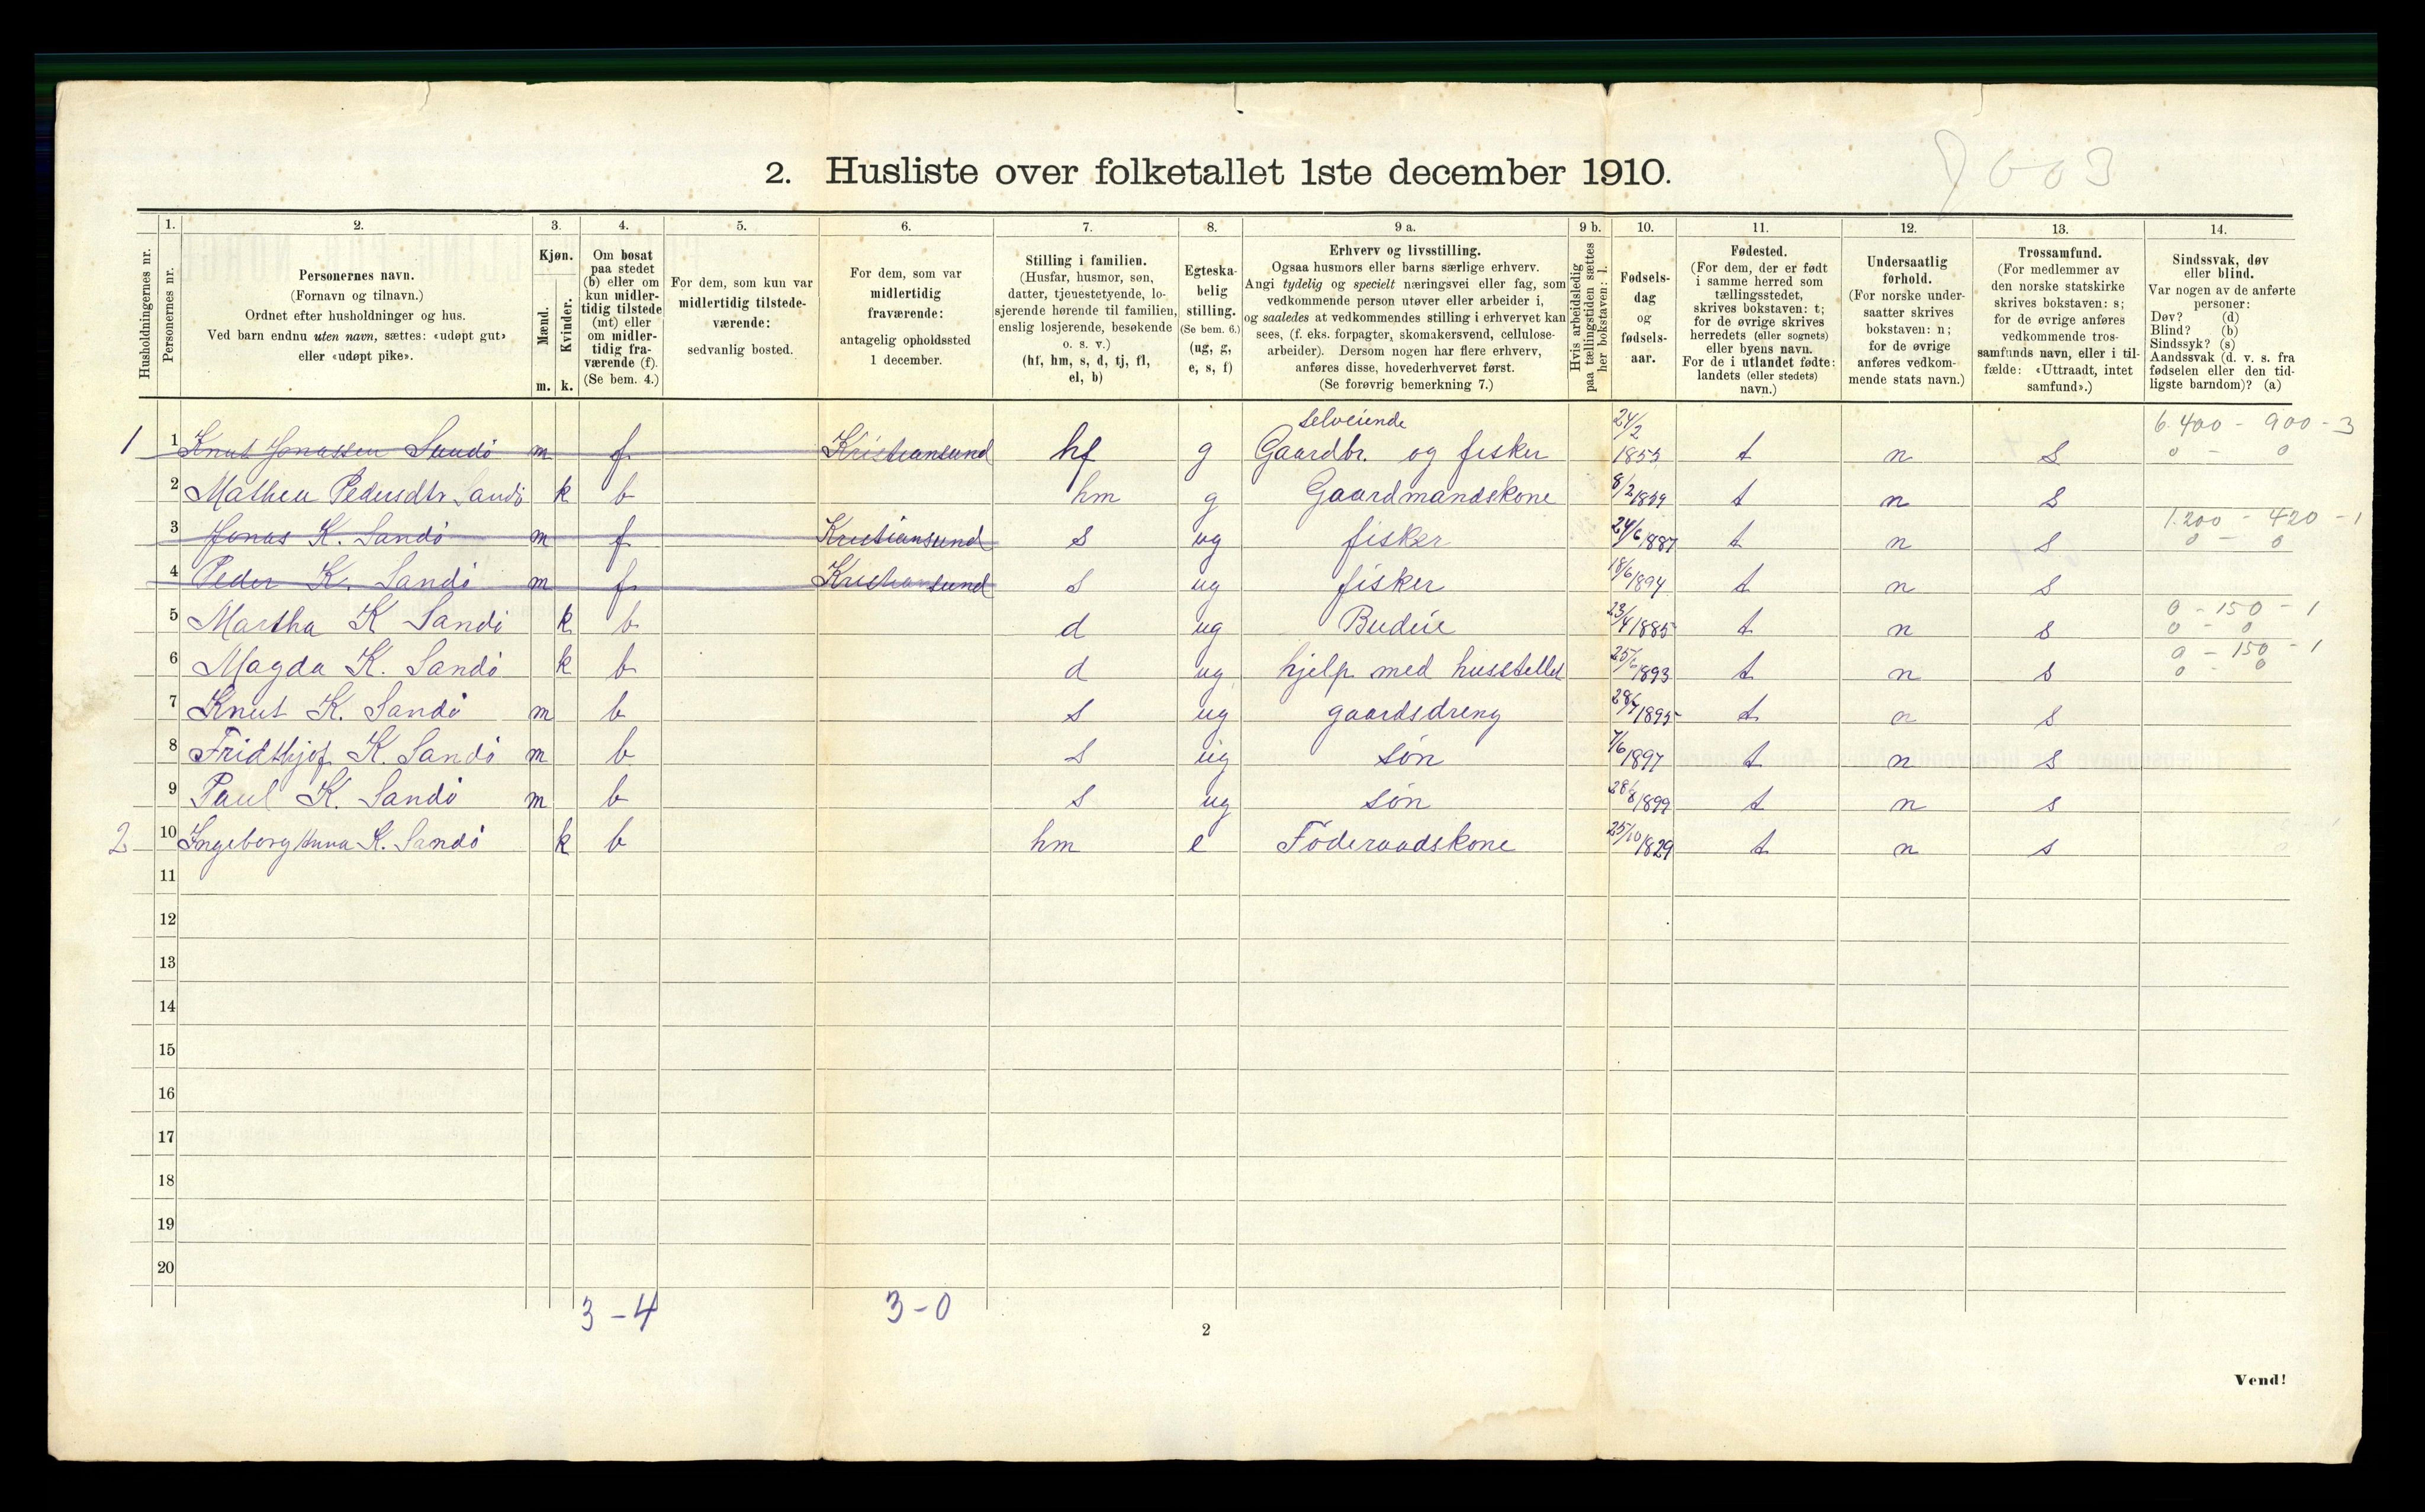 2. Husliste over folketallet 1ste december 1910.
Husholdningernes nr.
1.
Personernes nr.
2.
Personernes navn.
(Fornavn og tilnavn.)
Ordnet efter husholdninger og hus.
Ved barn endnu uten navn, sættes: «udøpt gut»
eller «udøpt pike».
3.
Kjøn.
Mænd.
Kvinder.
m. k.
4.
Om bosat
paa stedet
(b) eller om
kun midler-
tidig tilstede
(mt) eller
om midler-
tidig fra-
værende (f).
(Se bem. 4.)
5.
For dem, som kun var
midlertidig tilstede-
værende:
sedvanlig bosted.
6.
For dem, som var
midlertidig
fraværende:
antagelig opholdssted
1 december.
7.
Stilling i familien.
(Husfar, husmor, søn,
datter, tjenestetyende, lo-
sjerende hørende til familien,
enslig losjerende, besøkende
o. s. v.)
(hf, hm, s, d, tj, fl,
el, b)
8.
Egteska-
belig
stilling.
(Se bem. 6.)
(ug, g,
e, s, f)
9 a.
Erhverv og livsstilling.
Ogsaa husmors eller barns særlige erhverv.
Angi tydelig og specielt næringsvei eller fag, som
vedkommende person utøver eller arbeider i,
og saaledes at vedkommendes stilling i erhvervet kan
sees, (f. eks. forpagter, skomakersvend, cellulose-
arbeider). Dersom nogen har flere erhverv,
anføres disse, hovederhvervet først.
(Se forøvrig bemerkning 7.)
9 b.
Hvis arbeidsledig
paa tællingstiden sættes
her bokstaven: l.
10.
Fødsels-
dag
og
fødsels-
aar.
11.
Fødested.
(For dem, der er født
i samme herred som
tællingsstedet,
skrives bokstaven: t;
for de øvrige skrives
herredets (eller sognets)
eller byens navn.
For de i utlandet fødte:
landets (eller stedets)
navn.)
12.
Undersaatlig
forhold.
(For norske under-
saatter skrives
bokstaven: n;
for de øvrige
anføres vedkom-
mende stats navn.)
13.
Trossamfund.
(For medlemmer av
den norske statskirke
skrives bokstaven: s;
for de øvrige anføres
vedkommende tros-
samfunds navn, eller i til-
fælde: «Uttraadt, intet
samfund».)
14.
Sindssvak, døv
eller blind.
Var nogen av de anførte
personer:
Døv? (d)
Blind? (b)
Sindssyk? (s)
Aandssvak (d. v. s. fra
fødselen eller den tid-
ligste barndom)? (a)
selveiende 6.400 - 900 - 3
1 1 Knut Jonassen Sandö m f Kristiansund hf g Gaardbr. og fisker 24/2 1853 t n s 0 - 0
2 Mathea Pedersdtr Sandö k b hm g Gaardmandskone 8/2 1859 t n s
1.200 - 420 - 1
3 Jonas K. Sandö m f Kristiansund s ug fisker 24/6 1887 t n s 0 - 0
4 Peder K. Sandö m f Kristiansund s ug fisker 18/6 1894 t n s
0 - 150 - 1
5 Martha K Sandö k b d ug Budeie 23/4 1885 t n s 0 - 0
0 - 150 - 1
6 Magda K. Sandö k b d ug hjelp med husstellet 25/6 1893 t n s 0 - 0
7 Knut K. Sandö m b s ug gaardsdreng 1895 t n s
8 Fridthjof K. Sandö m b s ug sön 7/6 1897 t n s
9 Paul K. Sandö m b s ug sön 28/8 1899 t n s
2 10 Ingeborg Anna K. Sandö k b hm e Föderaadskone 25/10 1829 t n s
11
12
13
14
15
16
17
18
19
20
3 - 4 3 - 0
2
Vend!